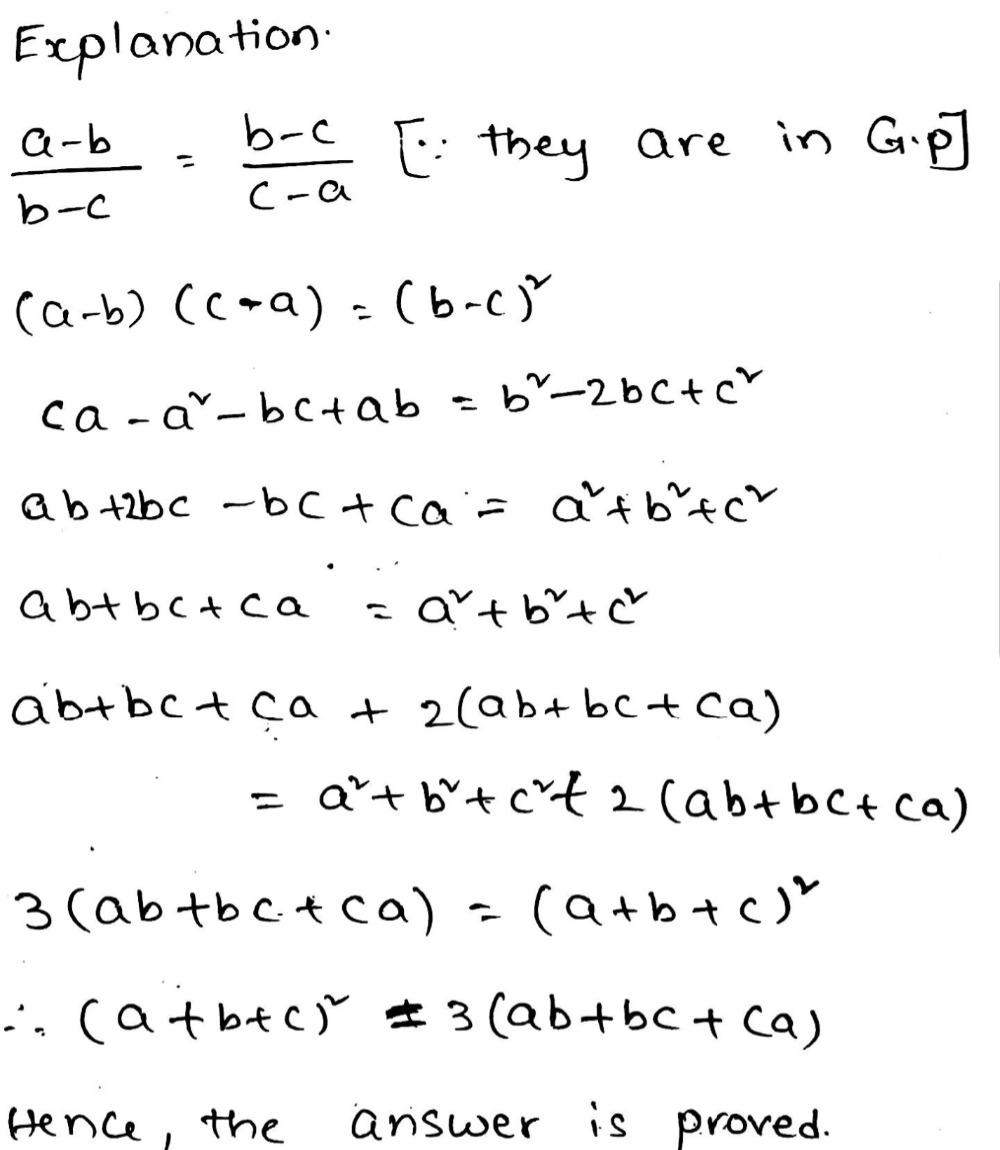 Explanation.
a-b/b-c = b-c/c-a [∵ they are in G.P]
(a-b) (c-a) = (b-c)²
ca - a² - bc + ab = b² - 2bc + c²
ab + 2bc - bc + ca = a² + b² + c²
ab + bc + ca = a² + b² + c²
ab + bc + ca + 2(ab + bc + ca)
= a² + b² + c² + 2(ab + bc + ca)
3(ab + bc + ca) = (a + b + c)²
∴ (a + b + c)² = 3(ab + bc + ca)
Hence, the answer is proved.